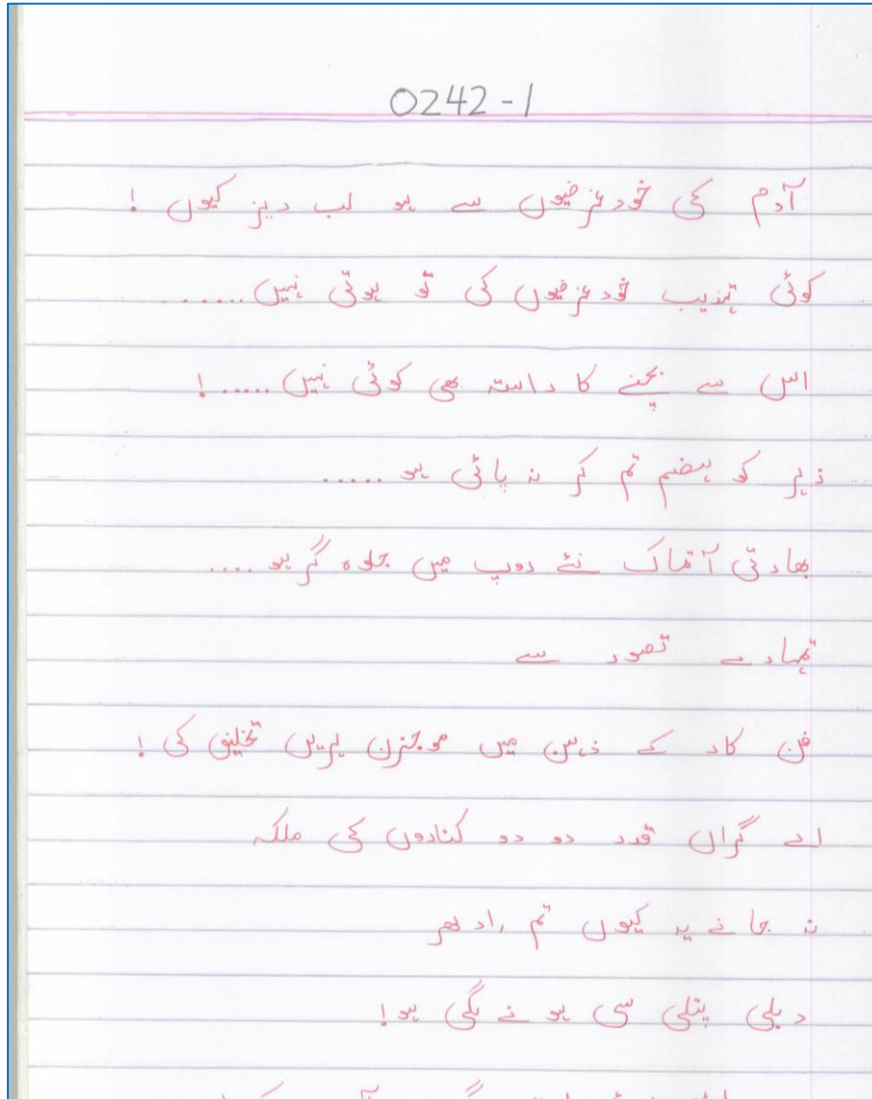 0242-1
آدم کی خودغرضیوں سے ہو لب ریز کیوں !
کوئی تہذیب خودغرضیوں کی تو ہوتی نہیں .....
اس سے بچنے کا راستہ بھی کوئی نہیں ..... !
زہر کو ہضم تم کر نہ پائی ہو .....
بھارتی آتماک نئے روپ میں جلوہ گر ہو ....
تمہارے تصور سے
فن کار کے ذہن میں موجزن لہریں تخلیق کی !
اے گراں قدر دو دو کناروں کی ملکہ
نہ جانے یہ کیوں تم ادھر
دبلی پتلی سی ہونے لگی ہو !